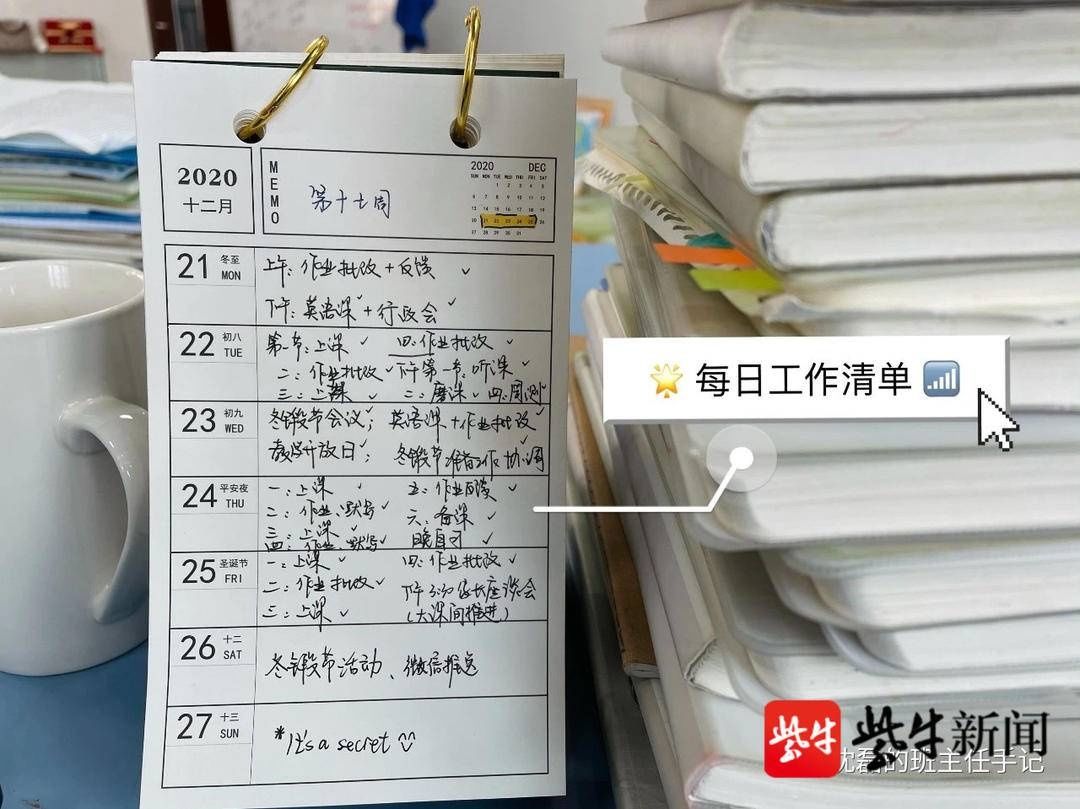 2020
十二月
MEMO
第十七周
2020 DEC
SUN MON TUE WED THU FRI SAT
1 2 3 4 5
6 7 8 9 10 11 12
13 14 15 16 17 18 19
20 21 22 23 24 25 26
27 28 29 30 31
21 冬至 MON
上午：作业批改+反馈 ✓
下午：英语课✓+行政会✓
22 初八 TUE
第一节：上课 ✓ 四：作业批改 ✓
二：作业批改 ✓ 下午第一节：听课 ✓
三：上课 ✓ 二：磨课 ✓ 四：周测
23 初九 WED
冬锻节会议✓；英语课✓+作业批改✓
教学开放日✓；冬锻节准备工作协调✓
24 平安夜 THU
一：上课 ✓ 五：作业 ✓
二：作业、默写 ✓ 六：备课 ✓
三：上课 ✓ 晚自习 ✓
四：作业、默写 ✓
25 圣诞节 FRI
一：上课 ✓ 四：作业批改 ✓
二：作业批改 ✓ 下午 家长座谈会
三：上课 ✓ (大课间推进)
26 十二 SAT
冬锻节活动、微信推送
27 十三 SUN
*It's a secret
每日工作清单
紫牛 紫牛新闻
沈磊的班主任手记